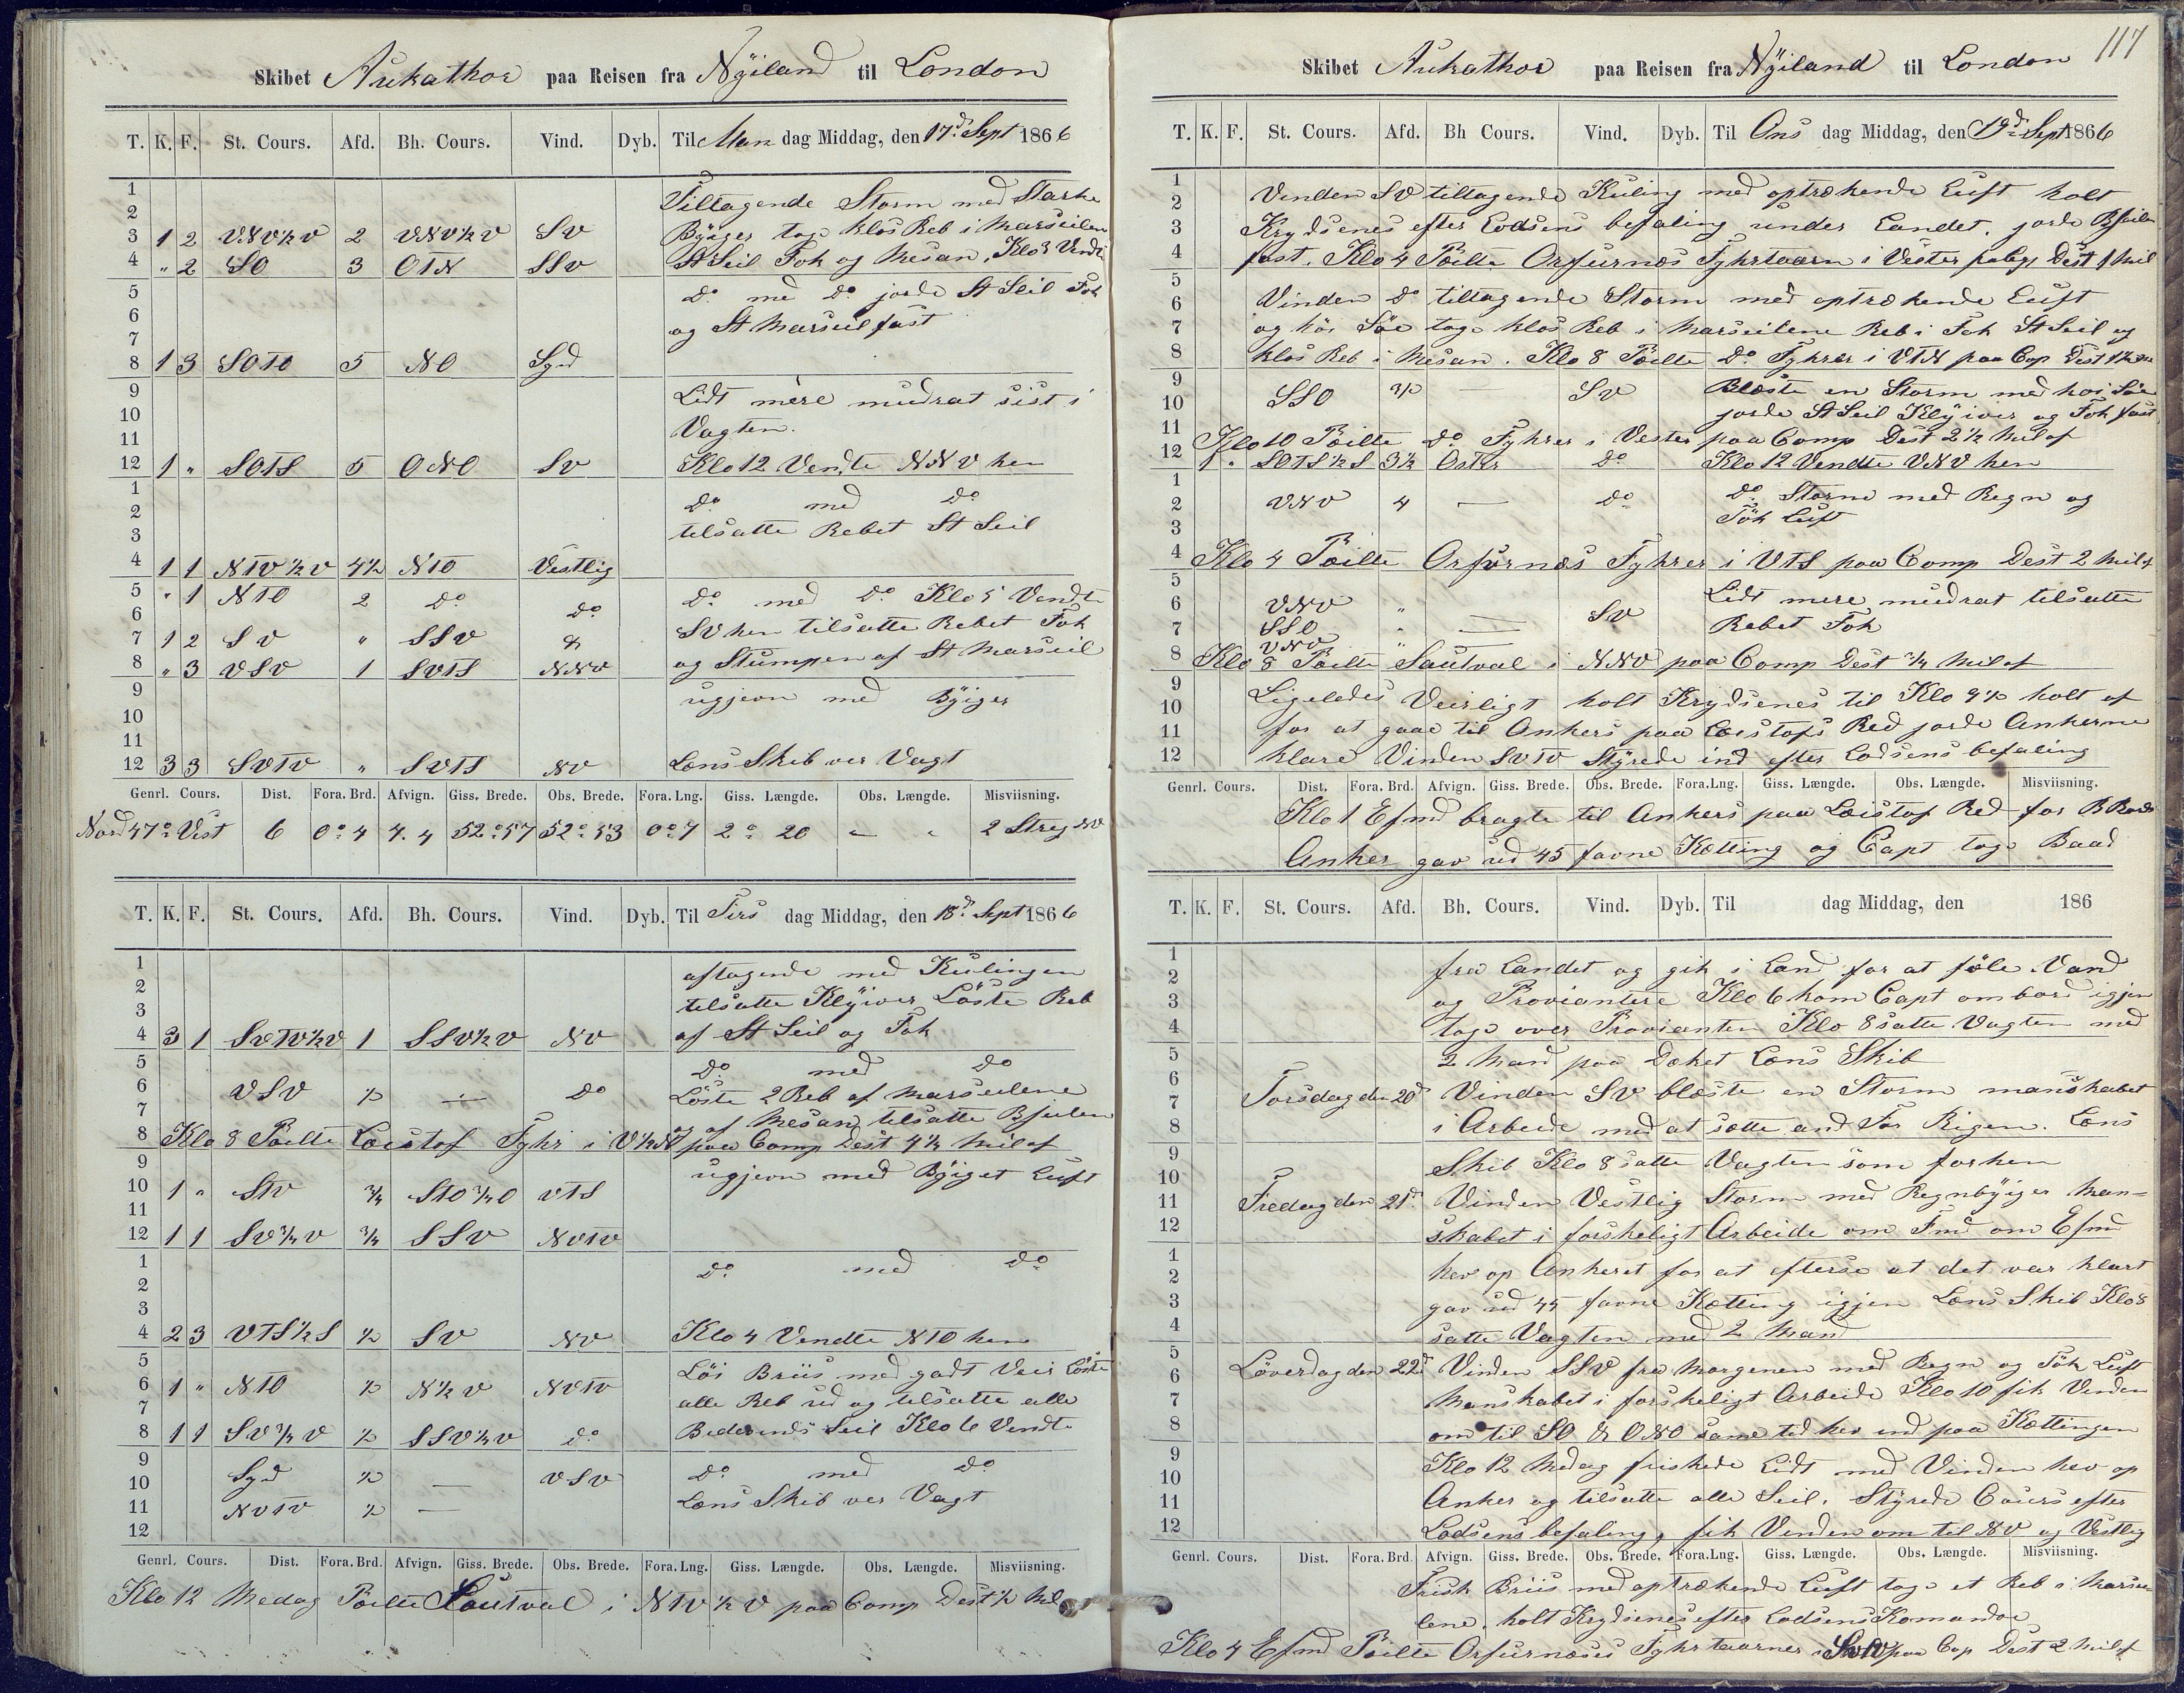 Skibet Aukathor paa Reisen fra Nÿiland til London
T. K. F. St. Cours. Afd. Bh. Cours. Vind. Dyb. Til Man dag Middag, den 17d. Sept 1866
1 Tiltagende Storm med Starke
2
3 1 2 VNV½V 2 VNV½V SV Bÿiger tog klos Reb i Marseilen
4 " 2 SO 3 OTN SSV St Seil Fok og Mesan. Klo 3 Vendt
5 Do med Do jorde St Seil Fok
6
7 og St Marseil fast
8 1 3 SOTO 5 NO Syd
9 Lidt mere mudrat sist i
10
11 Vagten.
12 1 " SOTS 5 ONO SV Klo 12 Vendte NNV hen
1 Do med Do
2
3 tilsatte Rebet St Seil
4 1 1 NTV½V 4½ NTO Vestlig
5 " 1 NTO 2 Do Do Do med Do Klo 5 Vendt
6
7 1 2 SV " SSV & SV hen tilsatte Rebet Fok
8 " 3 VSV 1 SVTS NNV og Stumpen af St Marseil
9 ugjevn med Bÿiger
10
11
12 3 3 SVTV " SVTS NV Lens Skib ver Vagt
Genrl. Cours. Dist. Fora. Brd. Afvign. Giss. Brede. Obs. Brede. Fora. Lng. Giss. Længde. Obs. Længde. Misviisning.
Nord 47° Vest 6 0° 4 4. 4 52° 57 52° 53 0° 7 2° 20 - " 2 Streg NV
T. K. F. St. Cours. Afd. Bh. Cours. Vind. Dyb. Til Tirs dag Middag, den 18d. Sept 1866
1 aftagende med Kulingen
2
3 tilsatte Klÿiver Löste Reb
4 3 1 SVTV½V 1 SSV½V NV af St Seil og Fok
5 Do med Do
6 VSV ½ - Do Löste 2 Reb af Marseilene
7 og af Mesan, tilsatte Bseilen
8 Klo 8 Pöilte Löistof Fyhr i V½N paa Comp Dest 4½ Mil af
9 ugjevn med Bÿiget Luft
10 1 " STV ¾ STO¾O VTS
11
12 1 1 SV¾V ¾ SSV NVTV
1 Do med Do
2
3
4 2 3 VTS½S ½ SV NV Klo 4 Vendte NTO hen
5 Löi Briis med godt Veir Löste
6 1 " NTO ½ N½V NVTV alle Reb ud og tilsatte alle
7
8 1 1 SV¾V ½ SSV½V Do Bidevinds Seil Klo 6 Vendt
9 Syd ½ — VSV Do med Do
10 Lens Skib ver Vagt
11 NVTV ½ —
12
Genrl. Cours. Dist. Fora. Brd. Afvign. Giss. Brede. Obs. Brede. Fora. Lng. Giss. Længde. Obs. Længde. Misviisning.
Klo 12 Medag Pöilte Sautval i NTV½V paa Comp Dest ½ Mil
117
Skibet Aukathor paa Reisen fra Nÿiland til London
T. K. F. St. Cours. Afd. Bh Cours. Vind. Dyb. Til Ons dag Middag, den 19d. Sept 1866
1
2 Vinden SV tiltagende Kuling med optrekende Luft holt
3 Krydsenes efter Lodsens befaling under Landet. jorde Bseilen
4 fast. Klo 4 Pöilte Orfurnæs Fyhrtaarn i Vester Dest 1 Mil
5
6 Vinden Do tiltagende Storm med optrekende Luft
7 og höi Söe tog klos Reb i Marseilene Reb i Fok St Seil og
8 klos Reb i Mesan. Klo 8 Pöilte Do Fyhrer i VTN paa Cop
9 Blæste en Storm med hoi Söe
10 SSO ½ — SV jorde St Seil Klÿiver og Fok fast
11 Klo 10 Pöilte Do Fyhrer i Vester paa Comp Dest 2½ Mil af
12 1 " SOTS½S 3½ Oster Do Klo 12 Vendte VNV hen
1 Do Storm med Regn og
2 VNV 4 — Do
3 Tök Luft
4 Klo 4 Pöilte Orfurnæs Fyhrer i VTS paa Comp Dest 2 Mil af
5 Lidt mere mudrat tilsatte
6 VNV " — SV
7 SSO " — Rebet Fok
VNV "
8 Klo 8 Pöilte Sautval i NNV paa Comp Dest ¾ Mil af
9
10 Ligeledes Veirligt holt Krydsenes til Klo 9½ holt af
11 for at gaae til Ankers paa Löistofs Red jorde Ankerne
12 klare Vinden SVTV Stÿrede ind efter Lodsens befaling
Genrl. Cours. Dist. Fora. Brd. Afvign. Giss. Brede. Obs. Brede. Fora. Lng. Giss. Længde. Obs. Længde. Misviisning.
Klo 1 Efmd bragte til Ankers paa Löistof Red for B Bords
Anker gav ud 45 favne Kætting og Capt tog Baad
T. K. F. St. Cours. Afd. Bh. Cours. Vind. Dyb. Til dag Middag, den 186
1 fra Landet og gik i Land for at föle Vand
2
3 og Proviantere Klo 6 kom Capt ombord igjen
4 tog over Provianten Klo 8 satte Vagten med
5 2 Mand paa Deket Lens Skib
6
7 Torsdag den 20d Vinden SV blæste en Storm manskabet
8 i Arbeide med at sætte and For Rigen. Lens
9 Skib Klo 8 satte Vagten som forhen
10
11 Fredag den 21d. Vinden Vestlig Storm med Regnbÿiger Man=
12 skabet i forskeligt Arbeide om Fmd om Efmd
1 hev op Ankeret for at efterse at det var klart
2
3 gav ud 45 favne Kætting igjen Lens Skib Klo 8
4 satte Vagten med 2 Mand
5
6 Löverdag den 22d Vinden SSV fra Morgenen med Regn og Tök Luft
7 Manskabet i forskeligt Arbeide Klo 10 fik Vinden
8 om til SO & ONO same tid hev ind paa Kættingen
9 Klo 12 Medag friskede Lidt med Vinden hev op
10
11 Anker og tilsatte alle Seil. Stÿrede Cours efter
12 Lodsens befaling, fik Vinden om til NV og Vestlig
Genrl. Cours. Dist. Fora. Brd. Afvign. Giss. Brede. Obs. Brede. Fora. Lng. Giss. Længde. Obs. Længde. Misviisning.
Frisk Briis med optrækende Luft tog et Reb i Marsei
lene, holt Krydsenes efter Lodsens Komandor
Klo 4 Efmd Pöilte Orfurnæses Fyhrtaarner i paa Cop Dest 2 Mil af